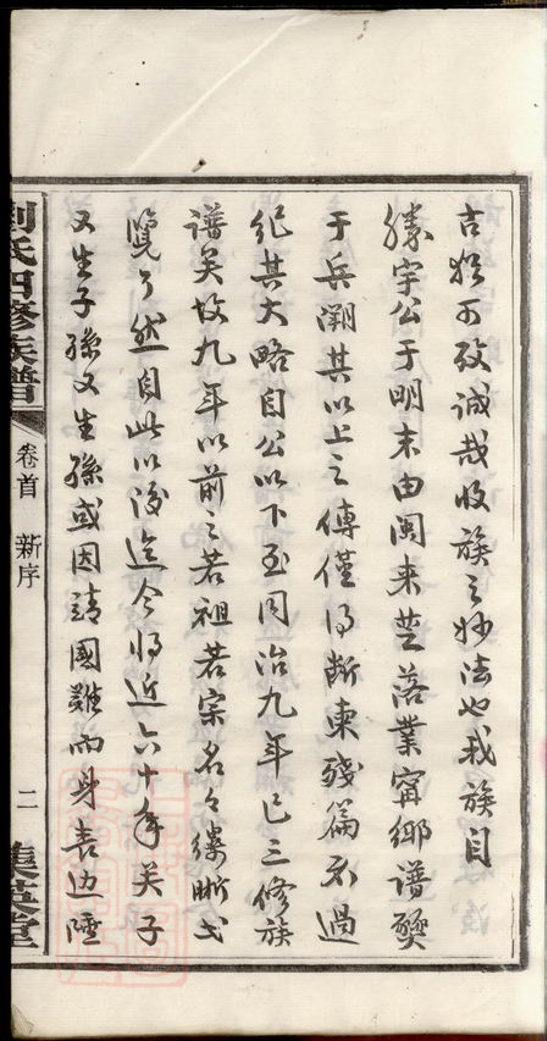 吉猶可攷誠哉收族之妙法也我族自
勝宇公于明末由閩来楚落業甯鄉譜燬
于兵燹其以上之傳僅得断柬殘篇不過
纪其大略自公以下至同治九年已三修族
譜矣故九年以前之若祖若宗名々縷晰弌
覽了然自此以後迄今将近六十年矣子
又生子孫又生孫或因靖國難而身喪边陲
劉氏四修族譜
卷首 新序
二
集英堂